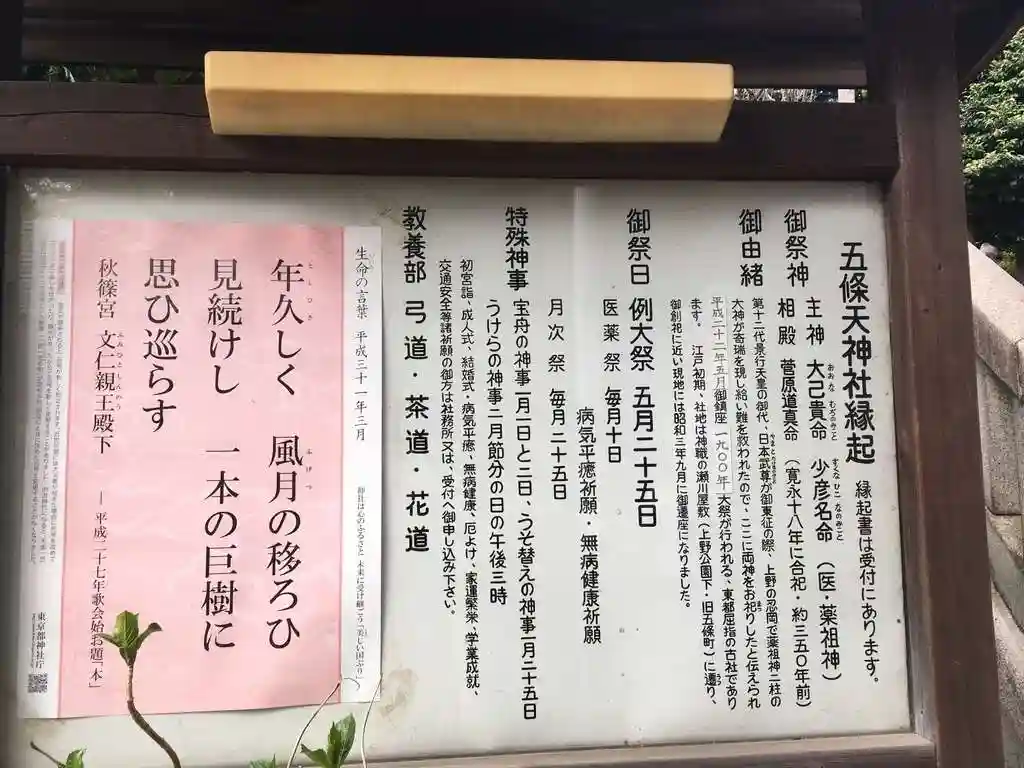 五條天神社縁起 縁起書は受付にあります。
御祭神 主神 大己貴命 少彦名命 (医・薬祖神)
おおなむぢのみこと すくなひこなのみこと
相殿 菅原道真命 (寛永十八年に合祀・約三五〇年前)
御由緒 第十二代景行天皇の御代、日本武尊が御東征の際、上野の忍岡で薬祖神二柱の
やまとたけるのみこと
大神が奇瑞を現し給い難を救われたので、ここに両神をお祀りしたと伝えられ
まつ
平成二十二年五月御鎮座一九〇〇年大祭が行われる、東都屈指の古社であり
ます。 江戸初期、社地は神職の瀬川屋敷(上野公園下・旧五條町)に遷り、
御創祀に近い現地には昭和三年九月に御遷座になりました。
御祭日 例大祭 五月二十五日
医薬祭 毎月十日
病気平癒祈願・無病健康祈願
月次祭 毎月二十五日
特殊神事 宝舟の神事一月二日と三日、うそ替えの神事一月二十五日
うけらの神事二月節分の日の午後三時
初宮詣、成人式、結婚式・病気平癒、無病健康、厄よけ、家運繁栄、学業成就、
交通安全等諸祈願の御方は社務所又は、受付へ御申し込み下さい。
教養部 弓道・茶道・花道
生命の言葉 平成三十一年三月 神社は心のふるさと 未来に受け継ごう「美しい国ぶり」
年久しく 風月の移ろひ
としひさ ふげつ
見続けし 一本の巨樹に
思ひ巡らす
秋篠宮 文仁親王殿下 ― 平成二十七年歌会始お題「本」
ふみひとしんのう
東京都神社庁